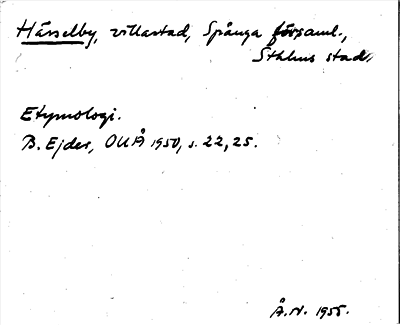 Hässelby, villastad, Spånga församl.,
Sthlms stad.
Etymologi.
B. Ejder, OUÅ 1950, s. 22, 25.
Å.N. 1955.